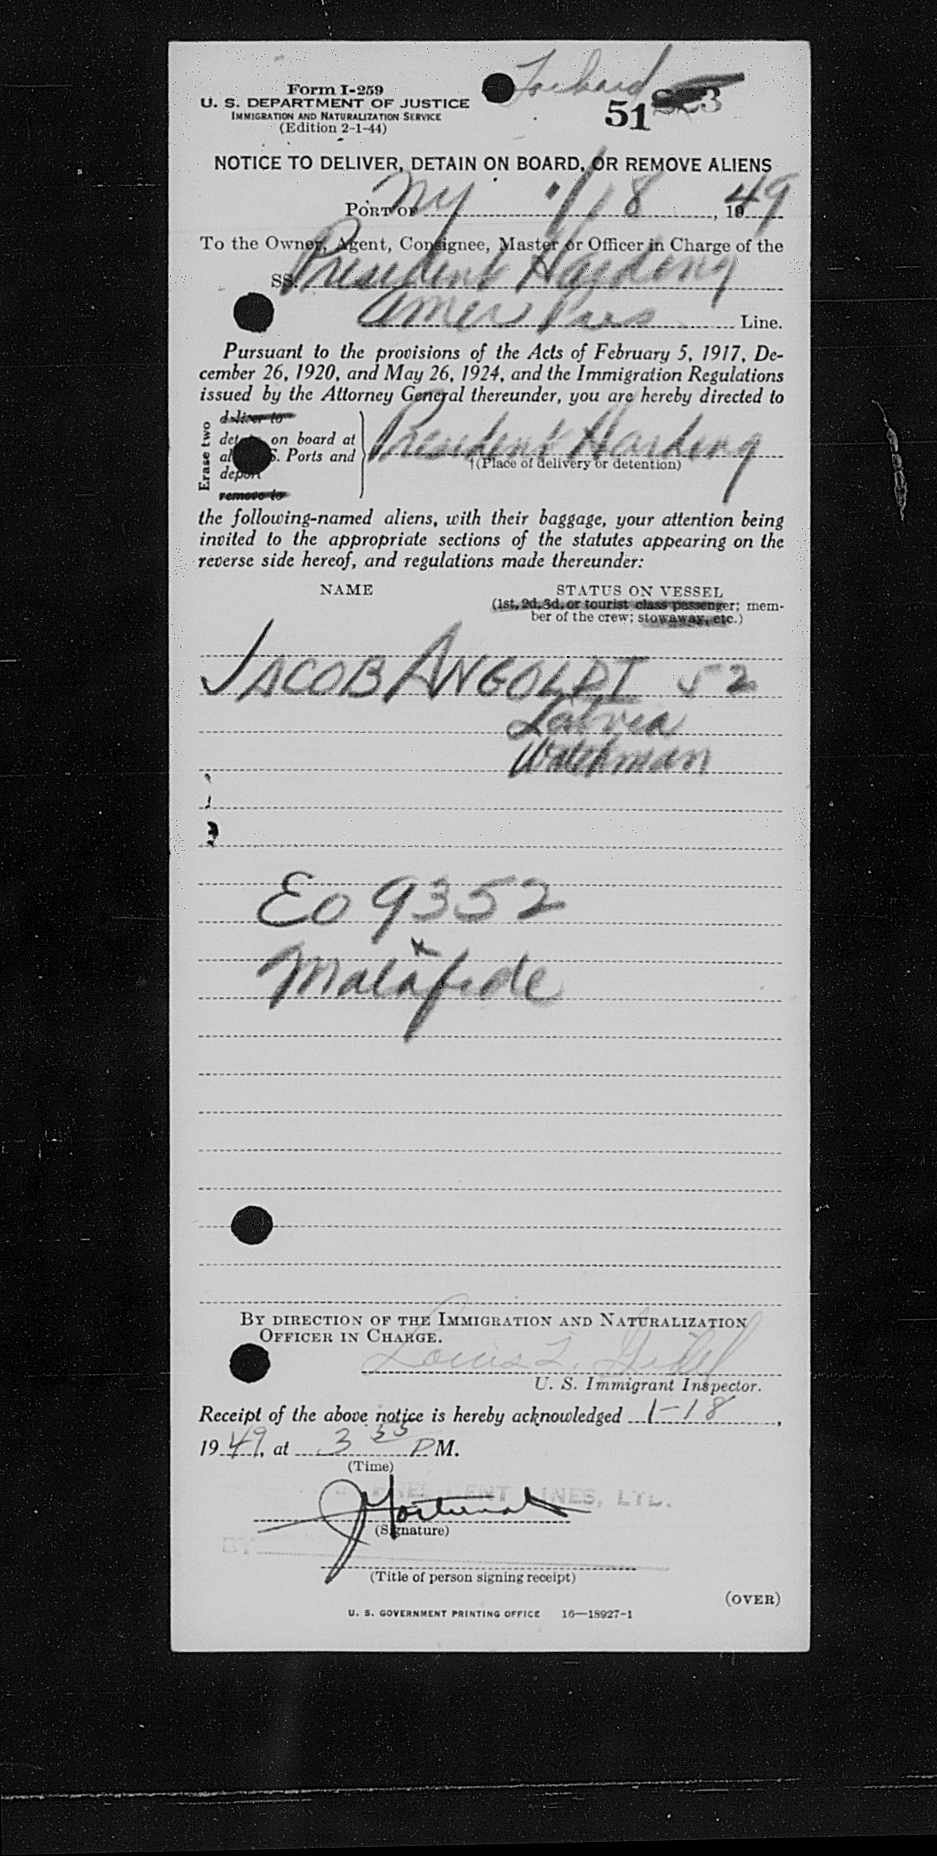 Form I-259
U. S. DEPARTMENT OF JUSTICE
IMMIGRATION AND NATURALIZATION SERVICE
(Edition 2-1-44)
51
NOTICE TO DELIVER, DETAIN ON BOARD, OR REMOVE ALIENS
PORT OF NY 1/18, 1949
To the Owner, Agent, Consignee, Master or Officer in Charge of the
SS. President Harding
Amer Pres Line.
Pursuant to the provisions of the Acts of February 5, 1917, De-
cember 26, 1920, and May 26, 1924, and the Immigration Regulations
issued by the Attorney General thereunder, you are hereby directed to
Erase two
deliver to
on board at
Ports and
deport
remove to
President Harding
†(Place of delivery or detention)
the following-named aliens, with their baggage, your attention being
invited to the appropriate sections of the statutes appearing on the
reverse side hereof, and regulations made thereunder:
NAME STATUS ON VESSEL
(1st, 2d, 3d, or tourist class passenger; mem-
ber of the crew; stowaway, etc.)
JACOB ANGOLDT 52
Latvia
Watchman
EO 9352
Malafide
BY DIRECTION OF THE IMMIGRATION AND NATURALIZATION
OFFICER IN CHARGE.
Louis L.
U. S. Immigrant Inspector.
Receipt of the above notice is hereby acknowledged 1-18,
1949, at 3 55 PM.
(Time)
LINES, LTD.
(Signature)
BY
(Title of person signing receipt)
(OVER)
U. S. GOVERNMENT PRINTING OFFICE 16—18927-1